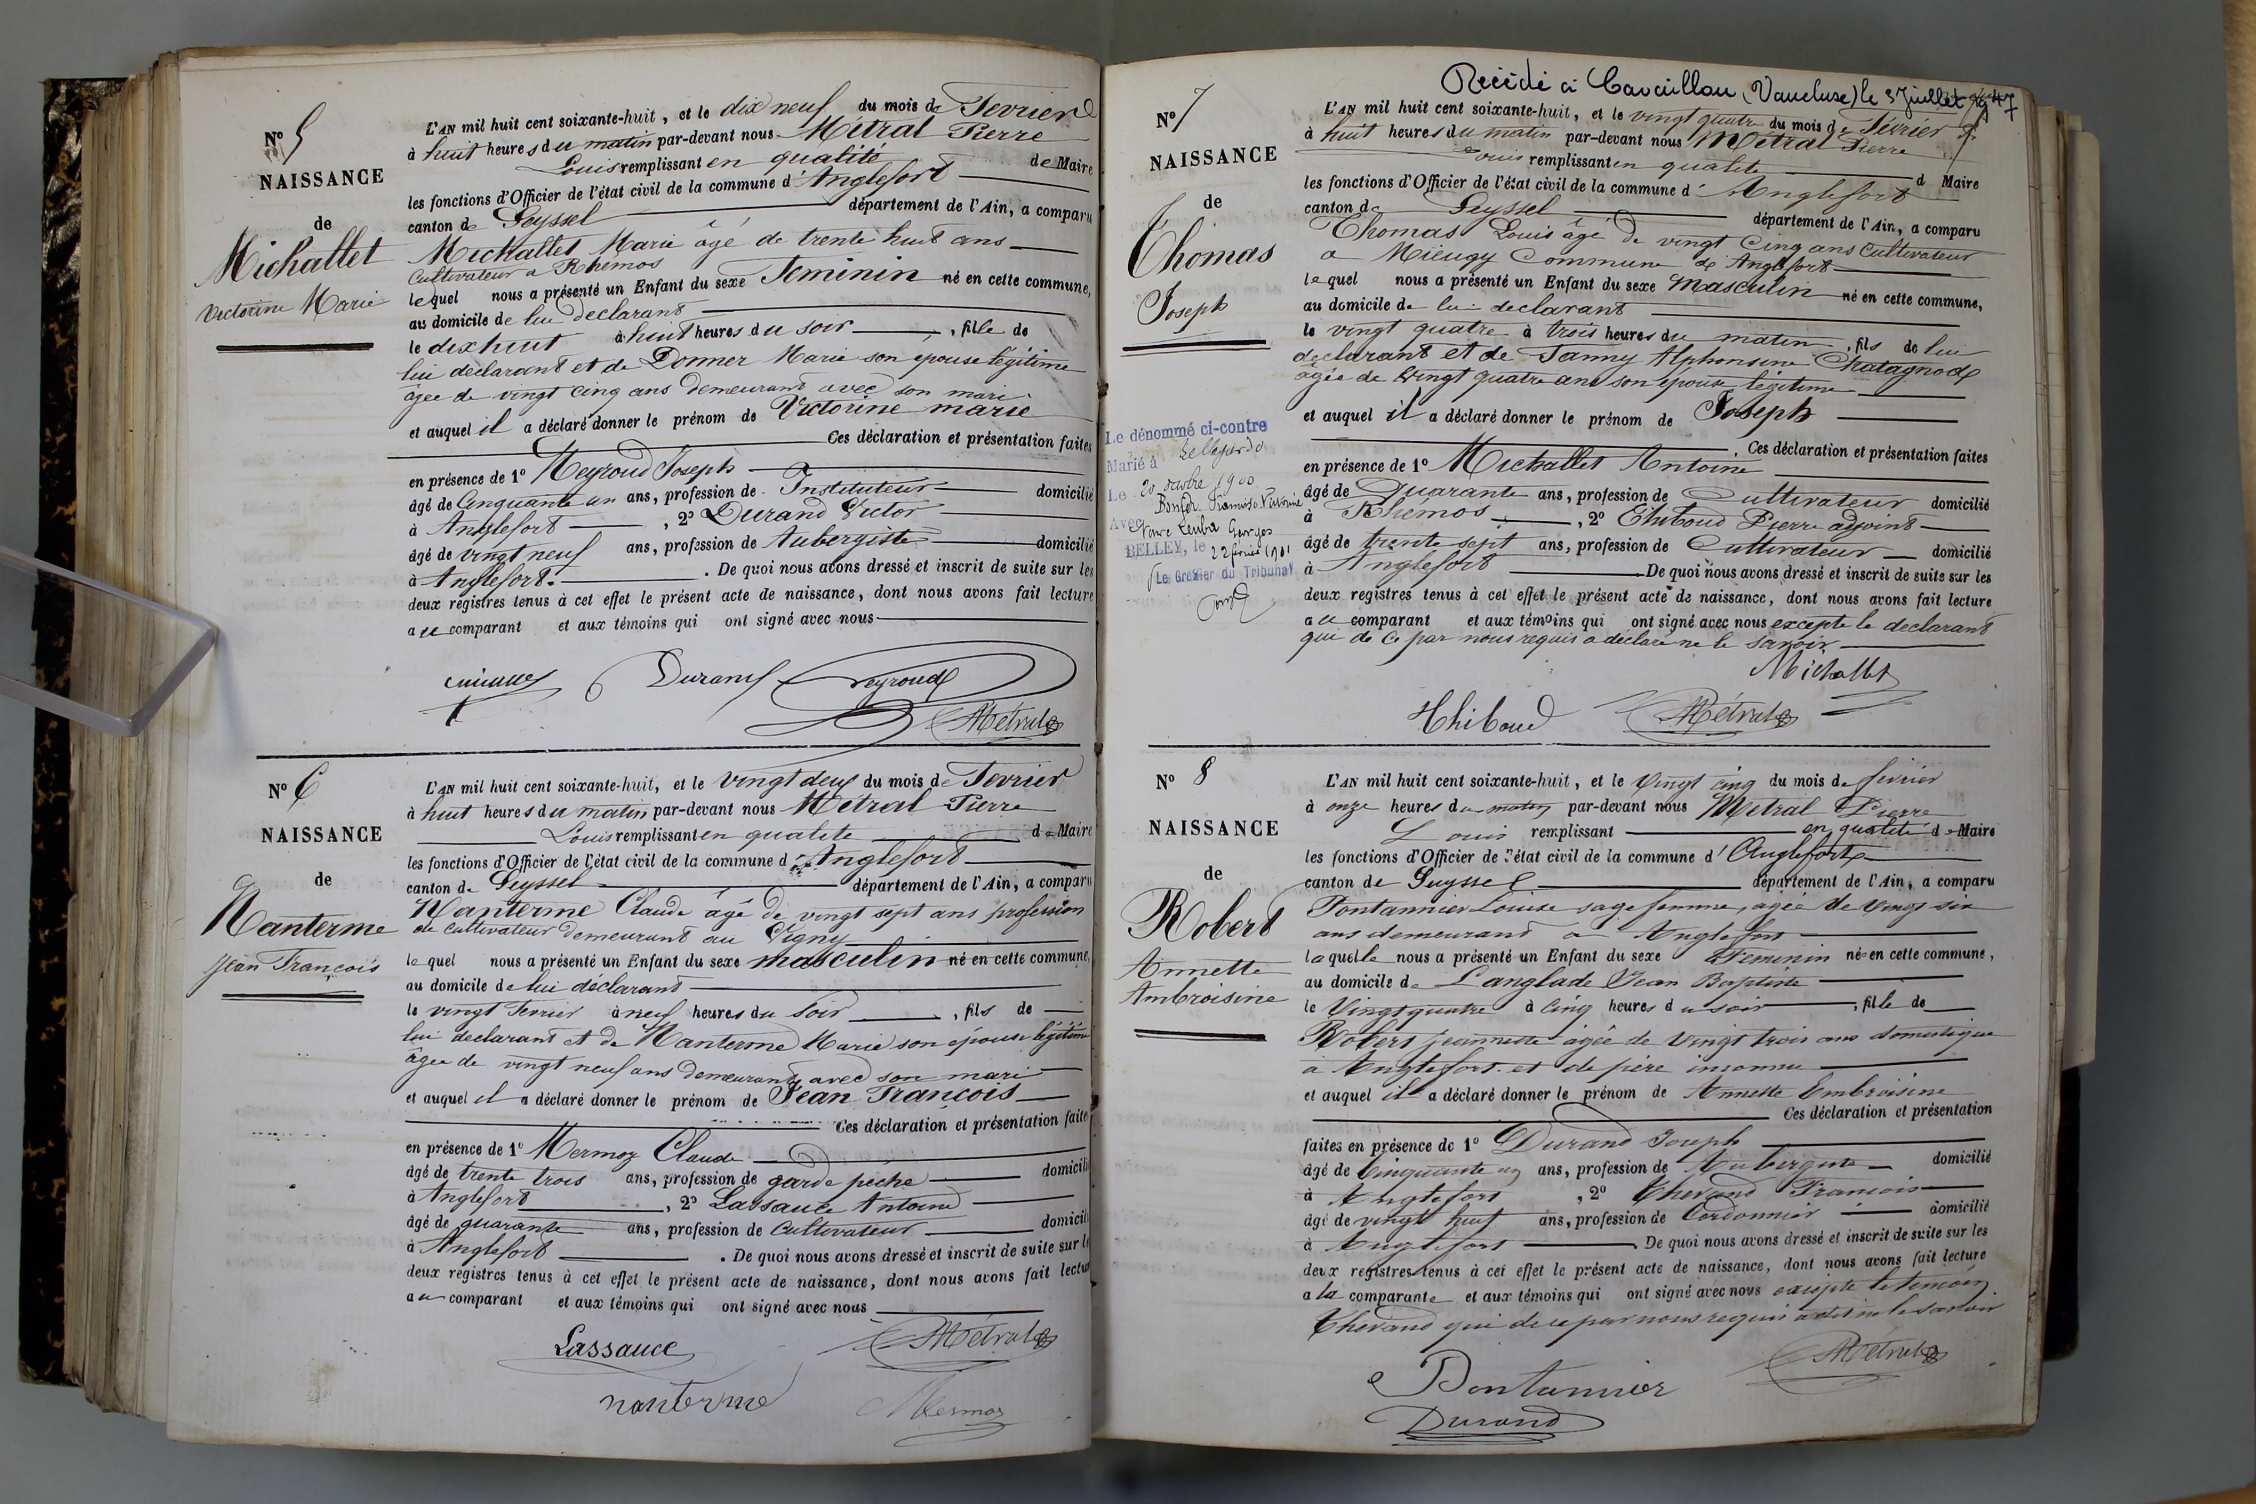 N° 5
NAISSANCE
de
Michallet
Victorine Marie
L'AN mil huit cent soixante-huit, et le dix neuf du mois de Fevrier
à huit heures du matin par-devant nous Métral Pierre
Louis remplissant en qualité de Maire
les fonctions d'Officier de l'état civil de la commune d'Anglefort
canton de Seyssel département de l'Ain, a comparu
Michallet Marie âgé de trente huit ans
Cultivateur a Rhémos
le quel nous a présenté un Enfant du sexe Feminin né en cette commune,
au domicile de lui declarant
le dix huit à huit heures du soir , fille de
lui déclarant et de Donner Marie son épouse légitime
agée de vingt cinq ans demeurant avec son mari
et auquel il a déclaré donner le prénom de Victorine marie
Ces déclaration et présentation faites
en présence de 1° Neyroud Joseph
âgé de Cinquante un ans, profession de Instituteur domicilié
à Anglefort , 2° Durand Victor
âgé de vingt neuf ans, profession de Aubergiste domicilié
à Anglefort. . De quoi nous avons dressé et inscrit de suite sur les
deux registres tenus à cet effet le présent acte de naissance, dont nous avons fait lecture
au comparant et aux témoins qui ont signé avec nous
Durand Neyroud
Métral
N° 6
NAISSANCE
de
Nanterme
Jean François
L'AN mil huit cent soixante-huit, et le vingt deux du mois de Fevrier
à huit heures du matin par-devant nous Métral Pierre
Louis remplissant en qualité de Maire
les fonctions d'Officier de l'état civil de la commune d'Anglefort
canton de Seyssel département de l'Ain, a comparu
Nanterme Claude âgé de vingt sept ans profession
de cultivateur demeurant au Vigny
le quel nous a présenté un Enfant du sexe masculin né en cette commune,
au domicile de lui déclarant
le vingt Fevrier à neuf heures du soir , fils de
lui declarant et de Nanterme Marie son épouse légitime
âgée de vingt neuf ans demeurant avec son mari
et auquel il a déclaré donner le prénom de Jean François
Ces déclaration et présentation faites
en présence de 1° Mermoz Claude
âgé de trente trois ans, profession de garde pêche domicilié
à Anglefort , 2° Lassauce Antoine
âgé de quarante ans, profession de Cultivateur domicilié
à Anglefort . De quoi nous avons dressé et inscrit de suite sur les
deux registres tenus à cet effet le présent acte de naissance, dont nous avons fait lecture
au comparant et aux témoins qui ont signé avec nous
Lassauce Métral
nanterme Mermoz
Décédé à Cavaillon (Vaucluse) le 3 juillet 1947
N° 7
NAISSANCE
de
Thomas
Joseph
L'AN mil huit cent soixante-huit, et le vingt quatre du mois de Février
à huit heures du matin par-devant nous Métral Pierre
Louis remplissant en qualité d Maire
les fonctions d'Officier de l'état civil de la commune d'Anglefort
canton de Seyssel département de l'Ain, a comparu
Thomas Louis âgé de vingt Cinq ans Cultivateur
a Mieugy Commune de Anglefort
le quel nous a présenté un Enfant du sexe Masculin né en cette commune,
au domicile de lui declarant
le vingt quatre à trois heures du matin , fils de lui
declarant et de Fanny Alphonsine Chatagnod
agée de vingt quatre ans son epouse légitime
et auquel il a déclaré donner le prénom de Joseph
. Ces déclaration et présentation faites
en présence de 1° Michallet Antoine
âgé de Quarante ans, profession de Cultivateur domicilié
à Rhemos , 2° Thiboud Pierre adjoint
âgé de trente sept ans, profession de Cultivateur domicilié
à Anglefort De quoi nous avons dressé et inscrit de suite sur les
deux registres tenus à cet effet le présent acte de naissance, dont nous avons fait lecture
au comparant et aux témoins qui ont signé avec nous excepte le declarant
qui de ce par nous requis a déclaré ne le savoir
Michallet
Thiboud Métral
Le dénommé ci-contre
Marié à Bellegarde
Le 20 octobre 1900
Avec
Veuve Georges
BELLEY, le 22 février 1901
Le Greffier du Tribunal
N° 8
NAISSANCE
de
Robert
Annette
Ambroisine
L'AN mil huit cent soixante-huit, et le vingt cinq du mois de février
à onze heures du matin par-devant nous Métral Pierre
Louis remplissant en qualité de Maire
les fonctions d'Officier de l'état civil de la commune d'Anglefort
canton de Seyssel département de l'Ain, a comparu
Fontannier Louise sage femme, agée de vingt six
ans demeurant a Anglefort
laquelle nous a présenté un Enfant du sexe Feminin né en cette commune,
au domicile de Langlade Jean Baptiste
le Vingt quatre à cinq heures du soir , fille de
Robert jeannette agée de Vingt trois ans domestique
a Anglefort et de père inconnu
et auquel il a déclaré donner le prénom de Annette Embroisine
Ces déclaration et présentation
faites en présence de 1° Durand Joseph
âgé de Cinquante un ans, profession de Aubergiste domicilié
à Anglefort , 2° Thevand François
âgé de vingt huit ans, profession de Cordonnier domicilié
à Anglefort De quoi nous avons dressé et inscrit de suite sur les
deux registres tenus à cet effet le présent acte de naissance, dont nous avons fait lecture
a la comparante et aux témoins qui ont signé avec nous excepte le temoin
Thevand qui de ce par nous requis a dit ne le savoir
Métral
Fontannier
Durand